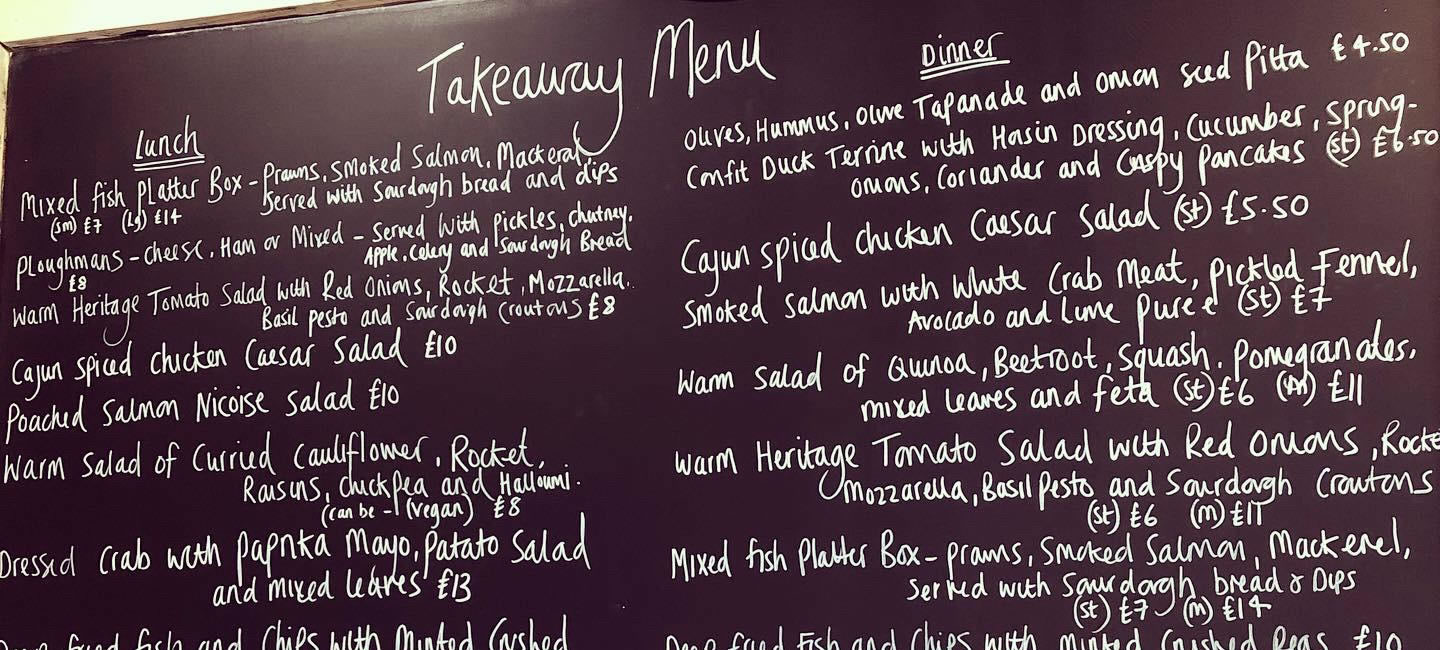 Takeaway Menu
Lunch
Mixed fish Platter Box - Prawns, Smoked Salmon, Mackeral
Served with Sourdough bread and dips
(sm) £7 (Lg) £14
Ploughmans - cheese, Ham or Mixed - Served With Pickles, chutney,
Apple, Celery and Sourdough Bread
£8
Warm Heritage Tomato Salad with Red Onions, Rocket, Mozzarella,
Basil Pesto and Sourdough Croutons £8
Cajun spiced chicken Caesar Salad £10
Poached Salmon Nicoise Salad £10
Warm Salad of Curried Cauliflower, Rocket,
Raisins, chickpea and Halloumi.
(can be - (vegan) £8
Dressed Crab with Paprika Mayo, Patato Salad
and mixed leaves £13
Deep fried fish and Chips with Minted Crushed
Dinner
Olives, Hummus, Olive Tapanade and onion seed Pitta £4.50
Confit Duck Terrine with Hosin Dressing, Cucumber, Spring-
onions, Coriander and Crispy Pancakes (st) £6.50
Cajun spiced chicken Caesar Salad (st) £5.50
Smoked Salmon with White Crab Meat, Pickled Fennel,
Avocado and Lime Puree (st) £7
Warm Salad of Quinoa, Beetroot, Squash, Pomegranates,
mixed leaves and feta (st) £6 (M) £11
Warm Heritage Tomato Salad with Red Onions, Rocke
Mozzarella, Basil Pesto and Sourdough Croutons
(st) £6 (m) £11
Mixed fish Platter Box - prawns, Smoked Salmon, Mackerel,
Served with Sourdough bread & Dips
(st) £7 (m) £14
Deep fried Fish and Chips with minted Crushed Peas £10